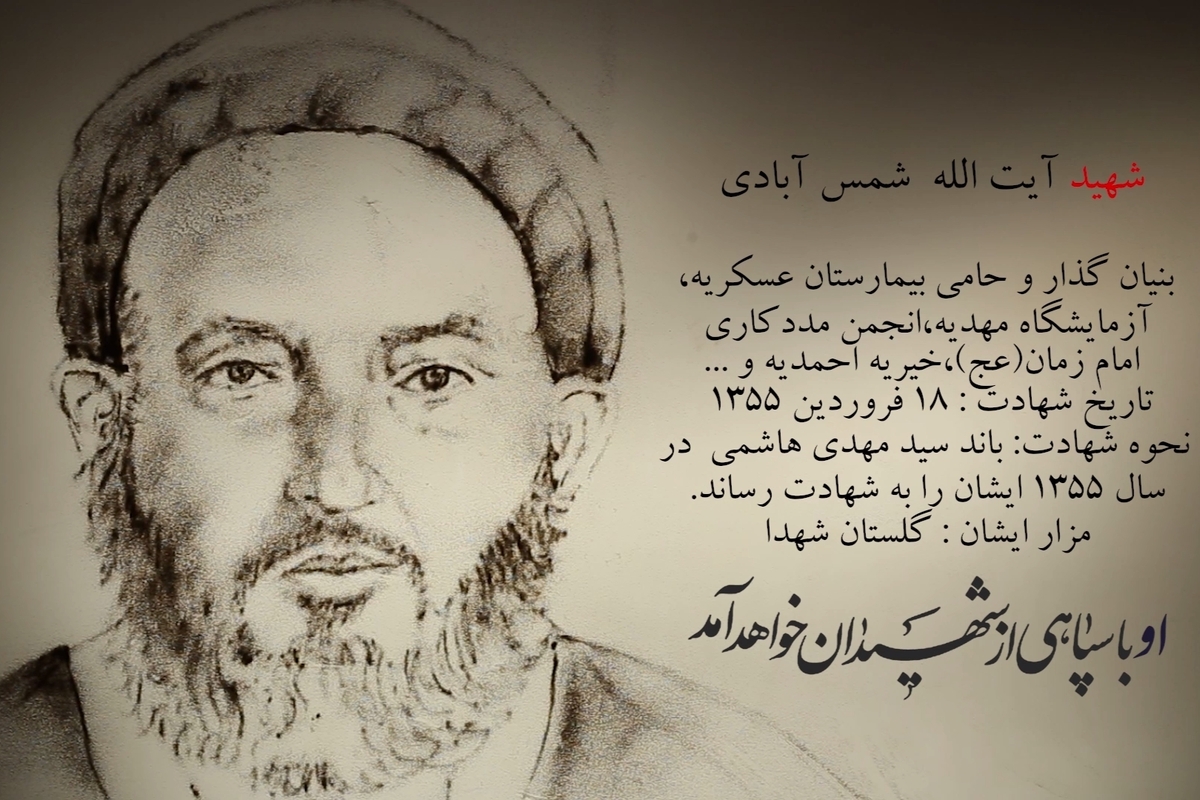 شهید آیت الله شمس آبادی
بنیان گذار و حامی بیمارستان عسکریه،
آزمایشگاه مهدیه،انجمن مددکاری
امام زمان(عج)،خیریه احمدیه و ...
تاریخ شهادت : ۱۸ فروردین ۱۳۵۵
نحوه شهادت: باند سید مهدی هاشمی در
سال ۱۳۵۵ ایشان را به شهادت رساند.
مزار ایشان : گلستان شهدا
او با سپاهی از شهیدان خواهد آمد